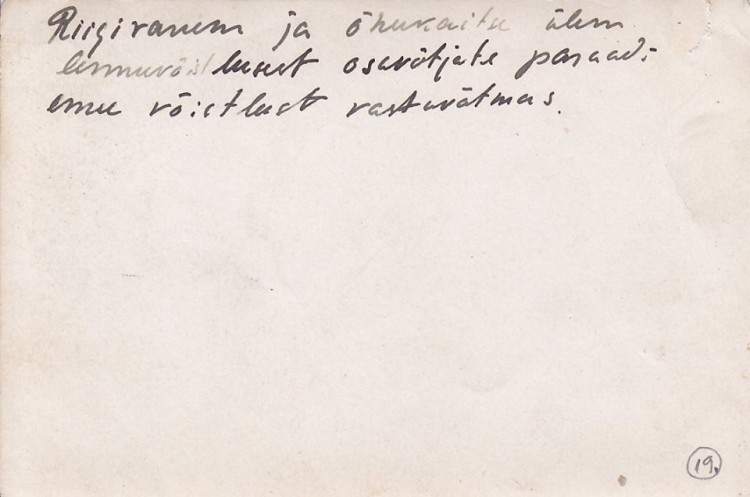 Riigivanem ja õhukaitse ülem
lennuvõistlusest osavõtjate paraadi
enne võistlust vastuvõtmas.
19.